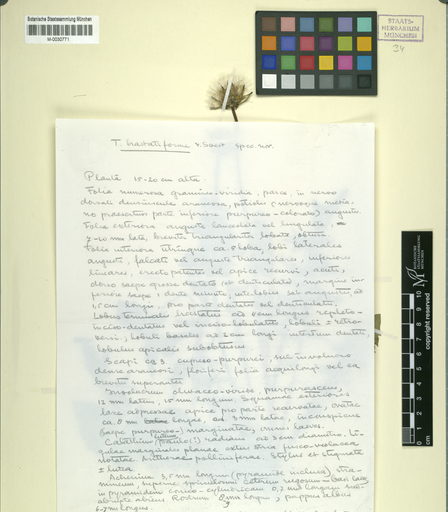 Botanische Staatssammlung München
M-0030771
STAATS-
HERBARIUM
MÜNCHEN
34
T. hastatiforme v. Soest spec. nov.
Planta 15-20 cm alta.
Folia numerosa gramineo-viridia, parce, in nervo
dorsali densiuscule araneosa, petiolis (nervoque media-
no praesertim parte inferiore purpureo-colorato) angustis.
Folia exteriora anguste lanceolata vel lingulata,
7-10 mm lata, breviter triangulariter lobata, obtusa
Folia interiora utrinque ca 5 loba, lobis lateralibus
angustis, falcatis vel anguste triangularibus, inferioribus
linearibus, erecto patentes vel apice recurvis, acutis,
dorso saepe grosse dentato (et denticulato), margine in-
feriore saepe 1 dente minuto, interlobiis sat angustis ad
1 cm longis, pro parte dentatis vel denticulatis.
Lobus terminalis hastatus ad 2 cm longus repleto-
inciso-dentatus vel crociso-lobulatus, lobulis ± retro-
versis, lobulis basales ad 1 cm longi interdum dentati
lobulus apicalis subobtusus
Scapi ca 3 cupreo-purpurei, sub involucro
dense araneosi, floriferi folia aequilongi vel ea
breviter superantes
Involucrum olivaceo-viride purpurascens,
12 mm latum, 15 mm longum. Squamae exteriores
laxe adpressae apice pro parte recurvatae, ovatae
ca 8 mm longae, ad 3 mm latae, inconspicue
saepe purpureo-marginatae, omnes laeves.
Calathium luteum radians ad 3 cm diametro, li-
gulae marginales planae extus stria fusco-violacea
notatae. Antherae polliniferae. Stylus et stigmata
± lutea
Achenium 3,5 mm longum (pyramide inclusa), stra-
mineum, superne spinulosum ceterum rugosum basi laeve,
in pyramidem conico-cylindricam 0,7 mm longam sub-
abrupte abiens Rostrum 8 mm longum, pappus albus
6-7 mm longus.